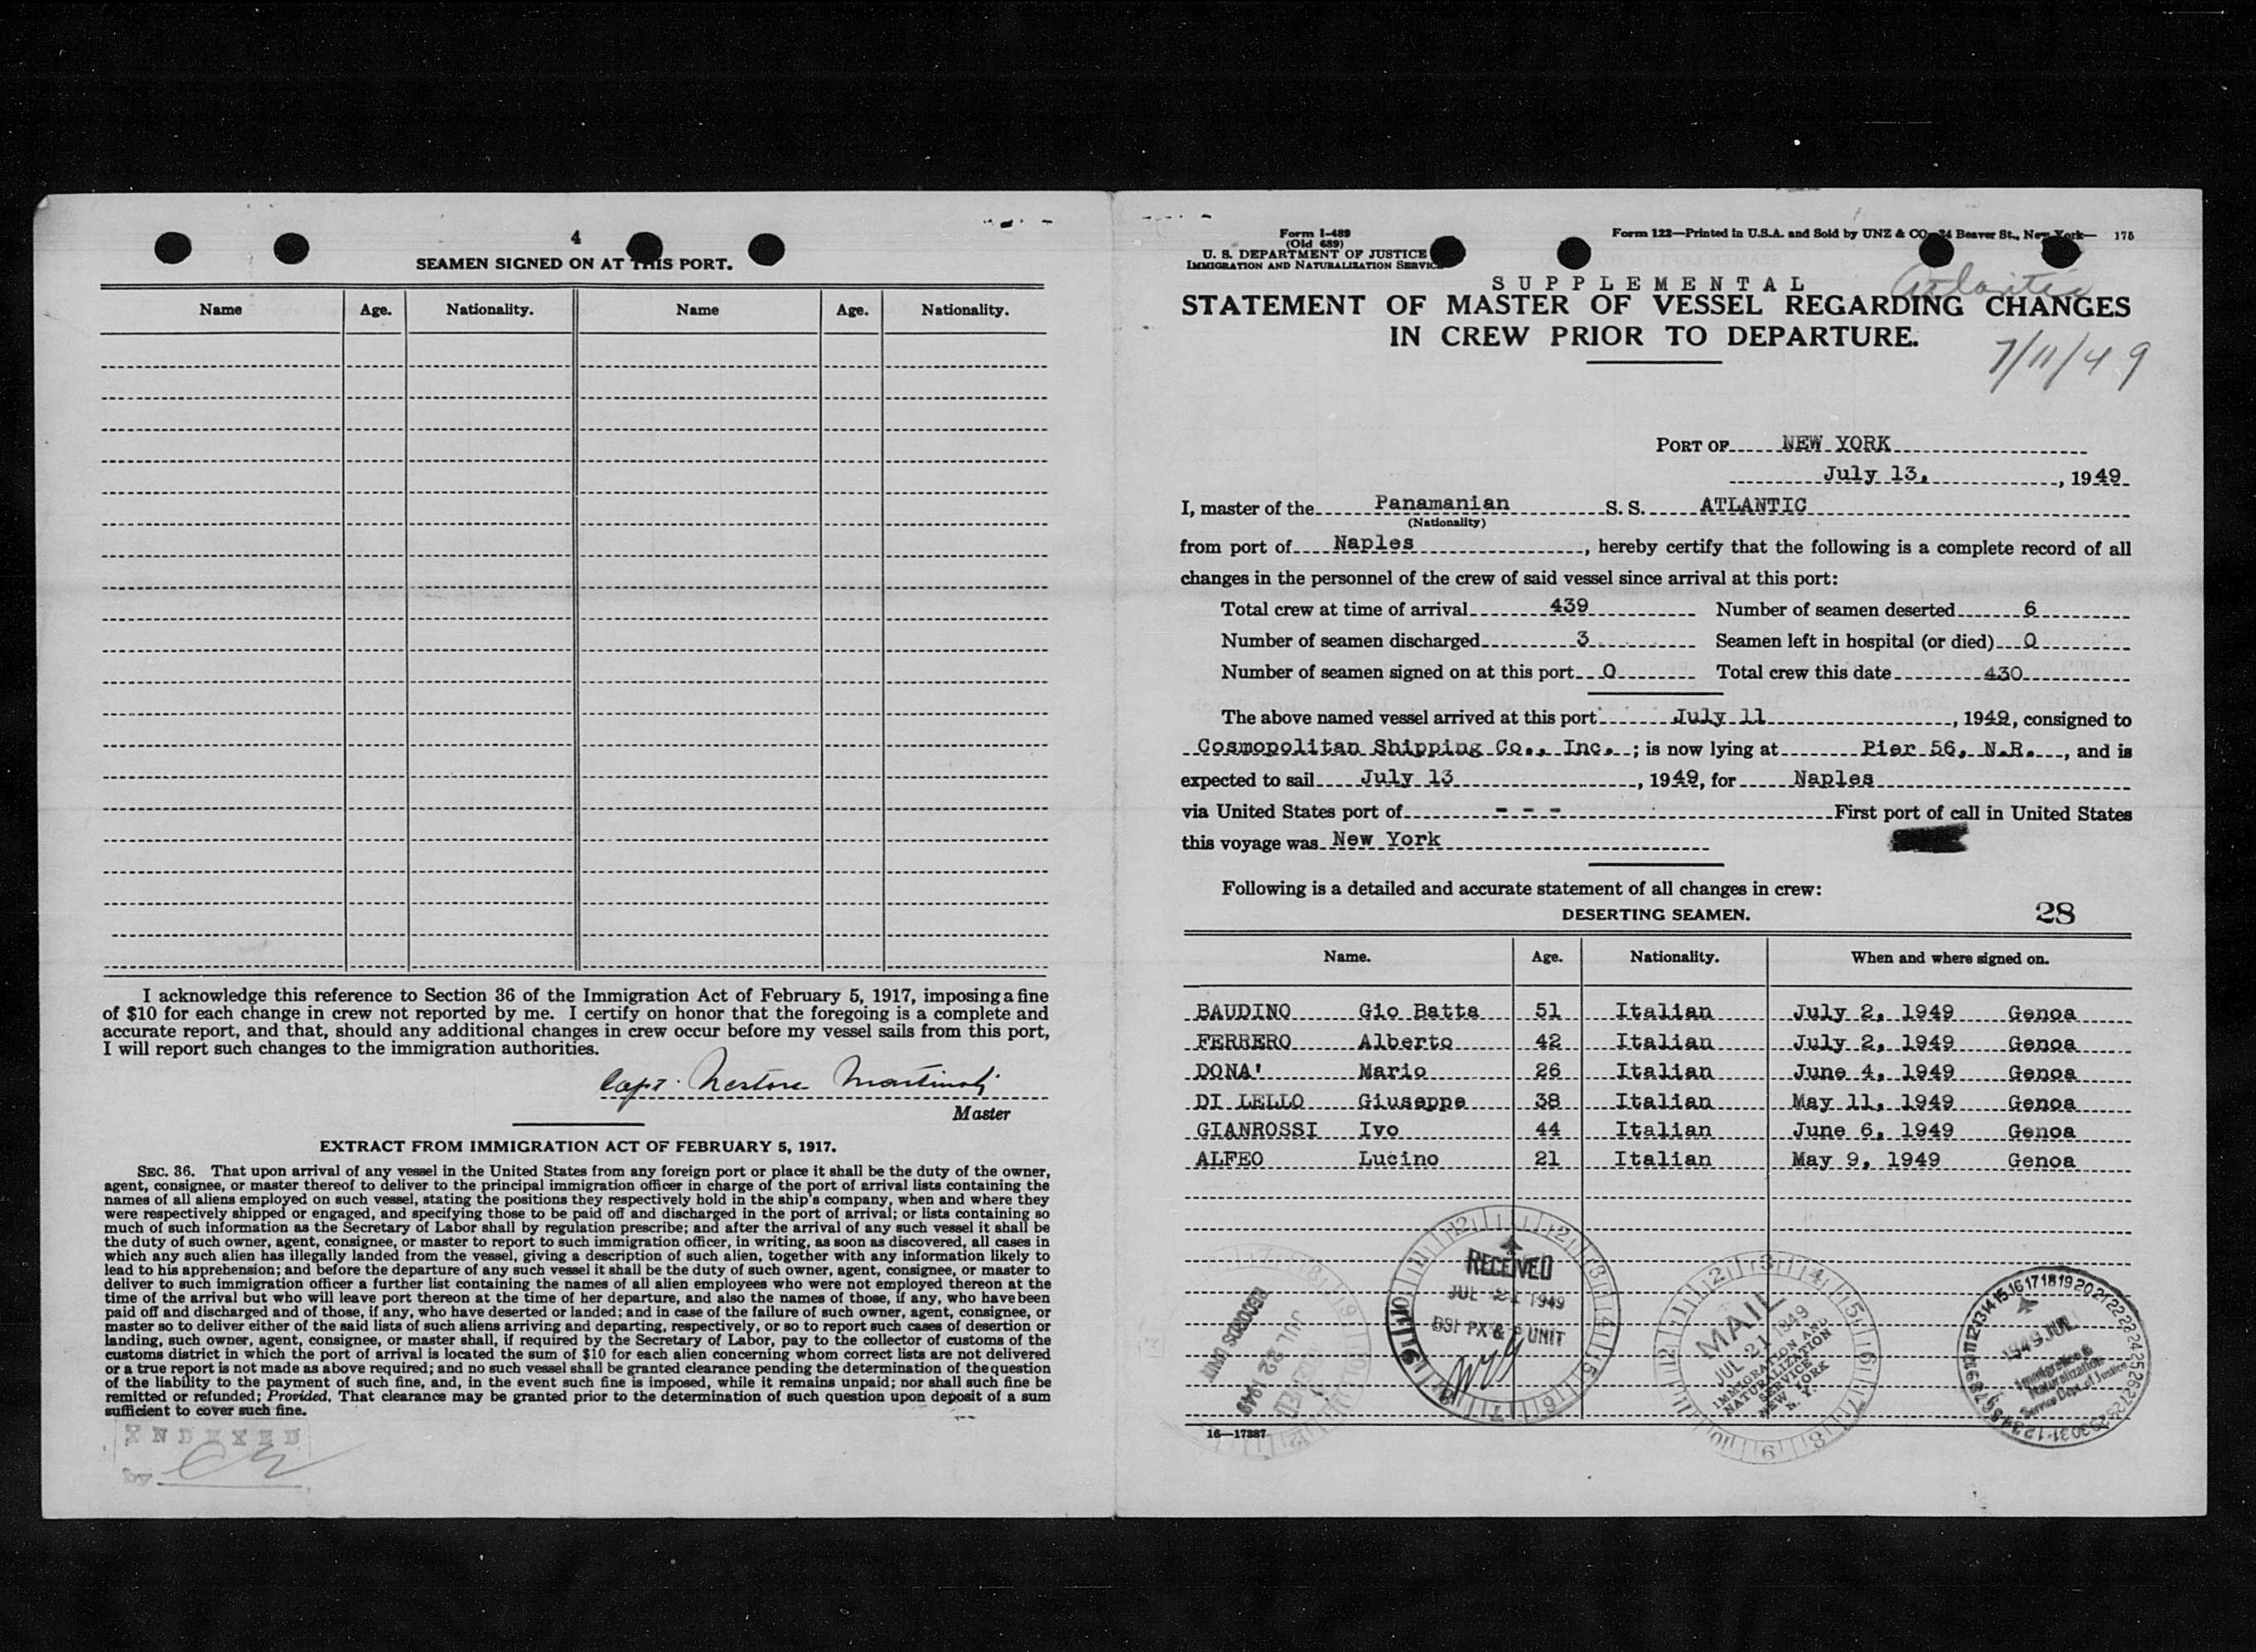 4
SEAMEN SIGNED ON AT THIS PORT.
Name Age. Nationality. Name Age. Nationality.
I acknowledge this reference to Section 36 of the Immigration Act of February 5, 1917, imposing a fine
of $10 for each change in crew not reported by me. I certify on honor that the foregoing is a complete and
accurate report, and that, should any additional changes in crew occur before my vessel sails from this port,
I will report such changes to the immigration authorities.
Capt. Nestore Martinoli
Master
EXTRACT FROM IMMIGRATION ACT OF FEBRUARY 5, 1917.
SEC. 36. That upon arrival of any vessel in the United States from any foreign port or place it shall be the duty of the owner,
agent, consignee, or master thereof to deliver to the principal immigration officer in charge of the port of arrival lists containing the
names of all aliens employed on such vessel, stating the positions they respectively hold in the ship's company, when and where they
were respectively shipped or engaged, and specifying those to be paid off and discharged in the port of arrival; or lists containing so
much of such information as the Secretary of Labor shall by regulation prescribe; and after the arrival of any such vessel it shall be
the duty of such owner, agent, consignee, or master to report to such immigration officer, in writing, as soon as discovered, all cases in
which any such alien has illegally landed from the vessel, giving a description of such alien, together with any information likely to
lead to his apprehension; and before the departure of any such vessel it shall be the duty of such owner, agent, consignee, or master to
deliver to such immigration officer a further list containing the names of all alien employees who were not employed thereon at the
time of the arrival but who will leave port thereon at the time of her departure, and also the names of those, if any, who have been
paid off and discharged and of those, if any, who have deserted or landed; and in case of the failure of such owner, agent, consignee, or
master so to deliver either of the said lists of such aliens arriving and departing, respectively, or so to report such cases of desertion or
landing, such owner, agent, consignee, or master shall, if required by the Secretary of Labor, pay to the collector of customs of the
customs district in which the port of arrival is located the sum of $10 for each alien concerning whom correct lists are not delivered
or a true report is not made as above required; and no such vessel shall be granted clearance pending the determination of the question
of the liability to the payment of such fine, and, in the event such fine is imposed, while it remains unpaid; nor shall such fine be
remitted or refunded; Provided, That clearance may be granted prior to the determination of such question upon deposit of a sum
sufficient to cover such fine.
INDEXED
By
Form I-489
(Old 689)
U. S. DEPARTMENT OF JUSTICE
IMMIGRATION AND NATURALIZATION SERVICE
Form 122—Printed in U.S.A. and Sold by UNZ & CO. 24 Beaver St., New York— 175
SUPPLEMENTAL
Atlantic
STATEMENT OF MASTER OF VESSEL REGARDING CHANGES
IN CREW PRIOR TO DEPARTURE.
7/11/49
PORT OF NEW YORK
July 13, , 1949
I, master of the Panamanian S. S. ATLANTIC
(Nationality)
from port of Naples , hereby certify that the following is a complete record of all
changes in the personnel of the crew of said vessel since arrival at this port:
Total crew at time of arrival 439 Number of seamen deserted 6
Number of seamen discharged 3 Seamen left in hospital (or died) 0
Number of seamen signed on at this port 0 Total crew this date 430
The above named vessel arrived at this port July 11 , 1949, consigned to
Cosmopolitan Shipping Co., Inc. ; is now lying at Pier 56, N.R. , and is
expected to sail July 13 , 1949, for Naples
via United States port of - - - First port of call in United States
this voyage was New York
Following is a detailed and accurate statement of all changes in crew:
DESERTING SEAMEN. 28
Name. Age. Nationality. When and where signed on.
BAUDINO Gio Batta 51 Italian July 2, 1949 Genoa
FERRERO Alberto 42 Italian July 2, 1949 Genoa
DONA' Mario 26 Italian June 4, 1949 Genoa
DI LELLO Giuseppe 38 Italian May 11, 1949 Genoa
GIANROSSI Ivo 44 Italian June 6, 1949 Genoa
ALFEO Lucino 21 Italian May 9, 1949 Genoa
RECEIVED
JUL 21 1949
BSI PX & P UNIT
RECORDS UNIT
JUL 22 1949
RECEIVED
MAIL
JUL 21 1949
IMMIGRATION AND
NATURALIZATION
SERVICE
NEW YORK
N. Y.
1949 JUL
Immigration &
Naturalization
Service Dept. of Justice
16—17387